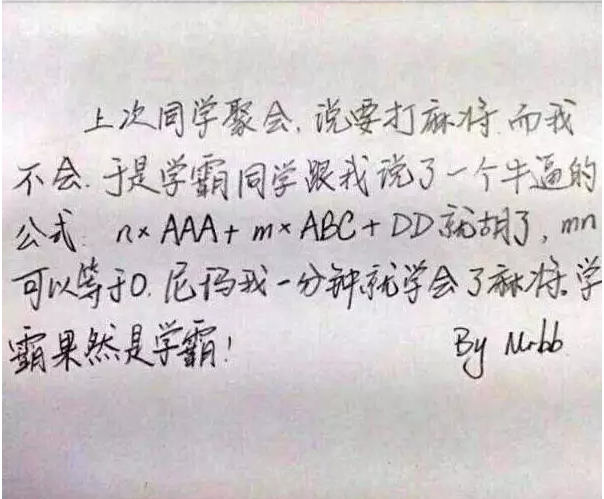 上次同学聚会，说要打麻将，而我
不会．于是学霸同学跟我说了一个牛逼的
公式：n×AAA+m×ABC+DD就胡了，mn
可以等于0．尼玛我一分钟就学会了麻将。学
霸果然是学霸！ By Mrbb